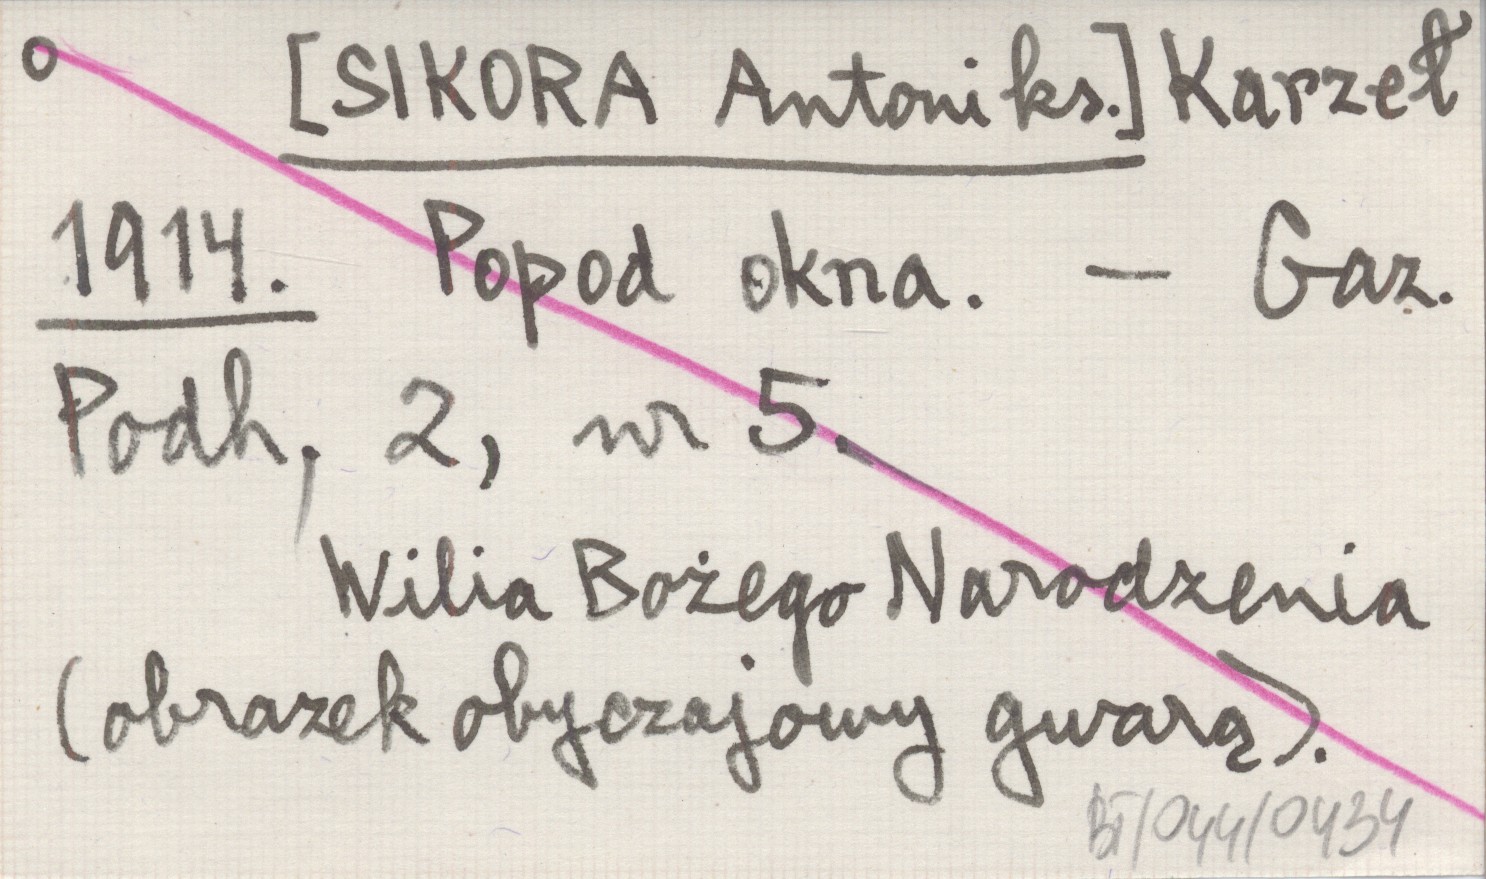 [SIKORA Antoni ks.] Karzeł
1914. Popod okna. – Gaz.
Podh, 2, nr 5.
Wilia Bożego Narodzenia
(obrazek obyczajowy gwarą).
BT/044/0434